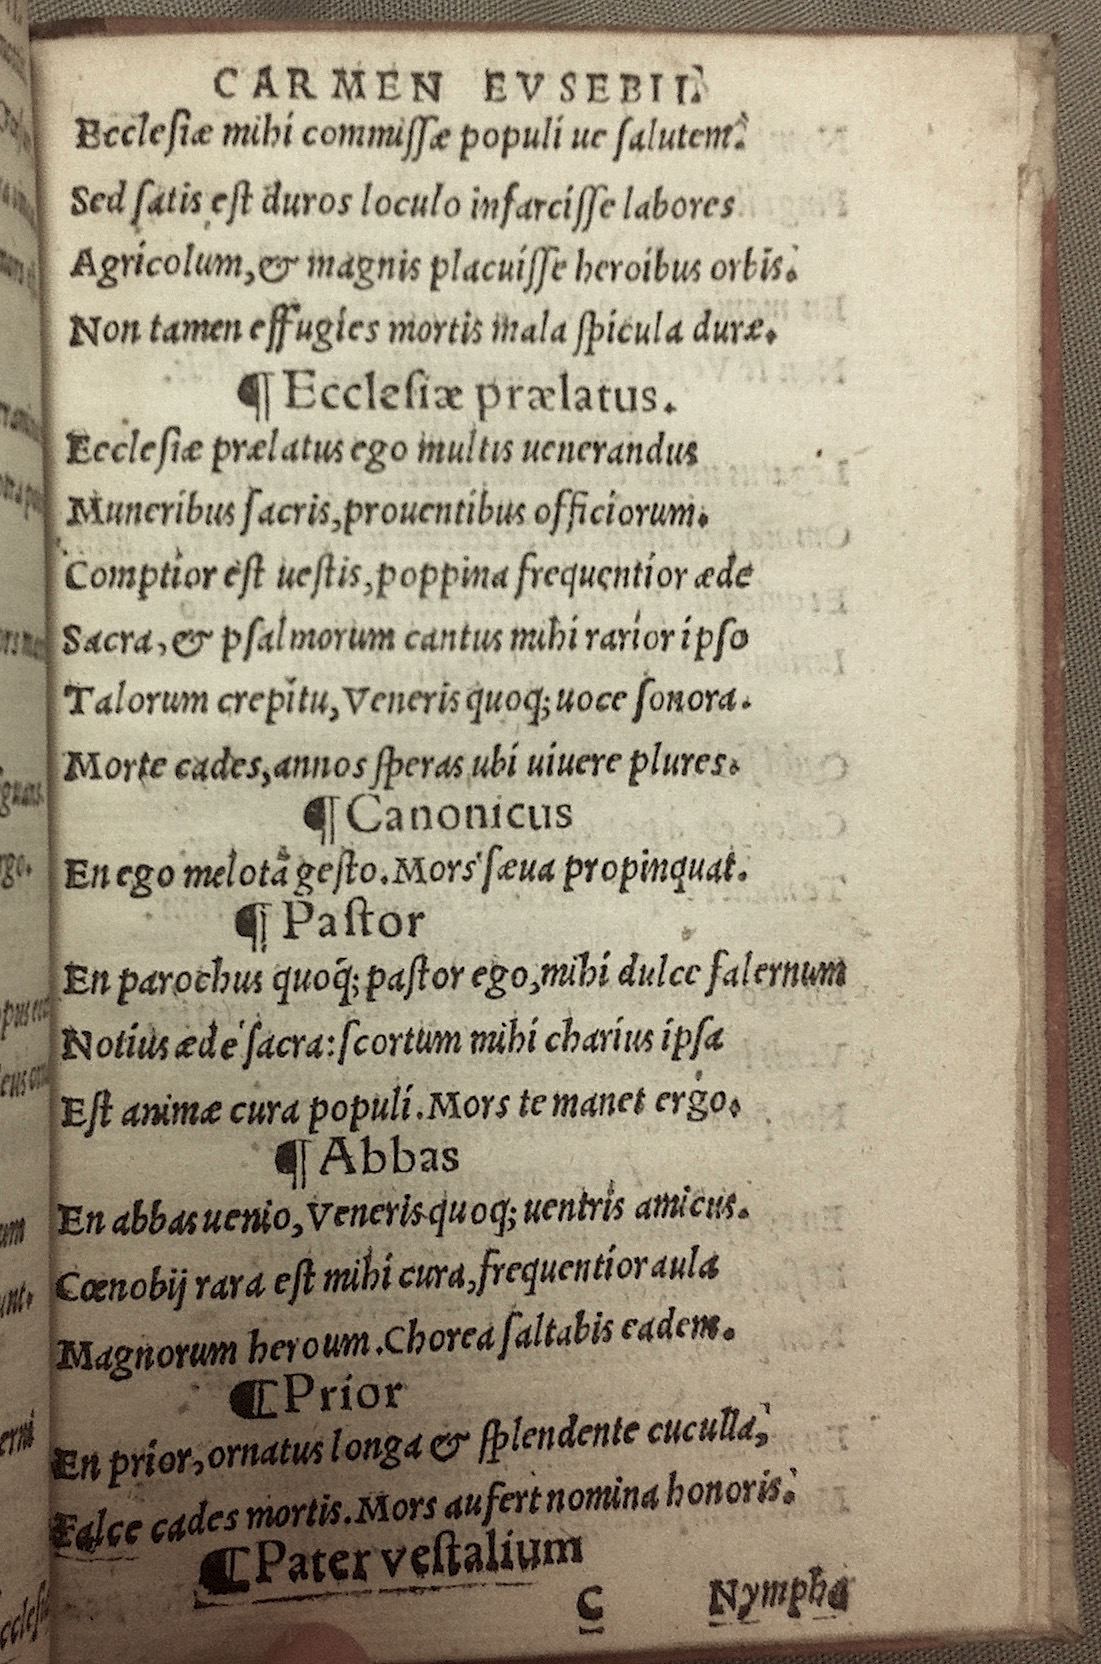 CARMEN EVSEBII.
Ecclesiæ mihi commissæ populi ue salutem.
Sed satis est duros loculo infarcisse labores
Agricolum, & magnis placuisse heroibus orbis.
Non tamen effugies mortis mala spicula duræ.
¶ Ecclesiæ prælatus.
Ecclesiæ prælatus ego multis uenerandus
Muneribus sacris, prouentibus officiorum.
Comptior est uestis, poppina frequentior æde
Sacra, & psalmorum cantus mihi rarior ipso
Talorum crepitu, Veneris quoq; uoce sonora.
Morte cades, annos speras ubi uiuere plures.
¶ Canonicus
En ego melotā gesto. Mors sæua propinquat.
¶ Pastor
En parochus quoq; pastor ego, mihi dulce falernum
Notius æde sacra: scortum mihi charius ipsa
Est animæ cura populi. Mors te manet ergo.
¶ Abbas
En abbas uenio, Veneris quoq; uentris amicus.
Cœnobij rara est mihi cura, frequentior aula
Magnorum heroum. Chorea saltabis eadem.
¶ Prior
En prior, ornatus longa & splendente cuculla,
Falce cades mortis. Mors aufert nomina honoris.
¶ Pater vestalium
C Nympha